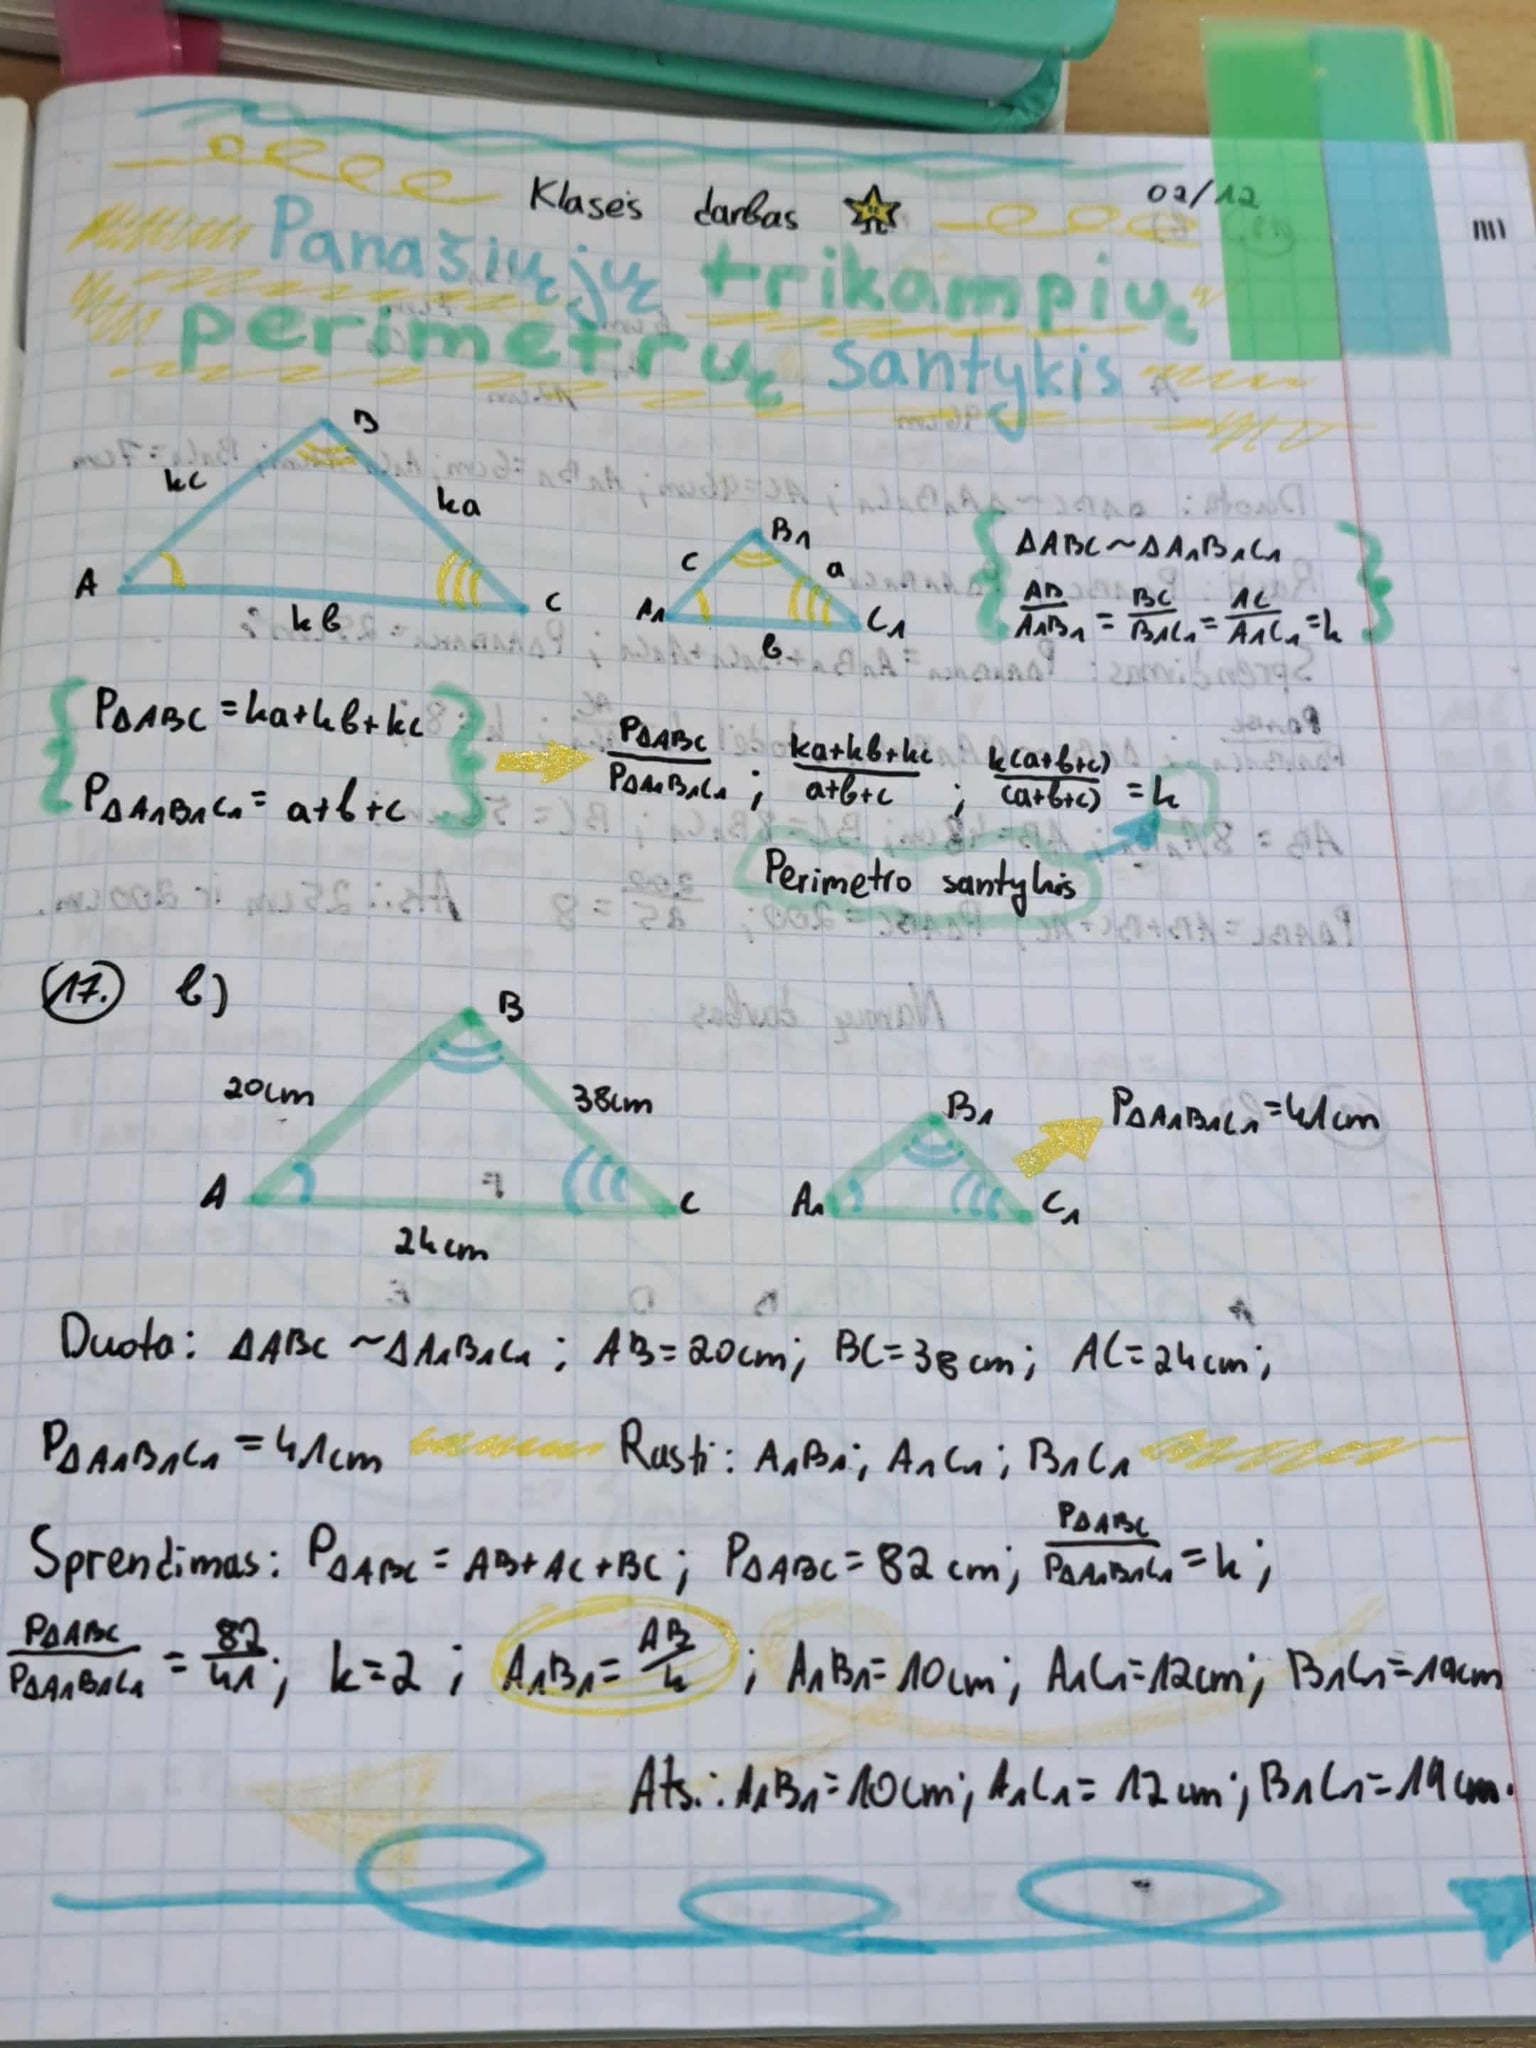 Klasės darbas
02/12
Panašiųjų trikampių
perimetrų santykis
B
kc
ka
A
kb
C
B₁
c
a
A₁
b
C₁
ΔABC ~ ΔA₁B₁C₁
AB/A₁B₁ = BC/B₁C₁ = AC/A₁C₁ = k
PΔABC = ka+kb+kc
PΔA₁B₁C₁ = a+b+c
PΔABC/PΔA₁B₁C₁ ; ka+kb+kc/a+b+c ; k(a+b+c)/(a+b+c) = k
Perimetro santykis
17. b)
B
20cm
38cm
A
C
24cm
B₁
A₁
C₁
PΔA₁B₁C₁ = 41cm
Duota: ΔABC ~ ΔA₁B₁C₁ ; AB = 20cm; BC = 38cm; AC = 24cm;
PΔA₁B₁C₁ = 41cm Rasti: A₁B₁; A₁C₁; B₁C₁
Sprendimas: PΔABC = AB+AC+BC; PΔABC = 82 cm; PΔABC/PΔA₁B₁C₁ = k;
PΔABC/PΔA₁B₁C₁ = 82/41; k=2; A₁B₁ = AB/k; A₁B₁ = 10cm; A₁C₁ = 12cm; B₁C₁ = 19cm
Ats.: A₁B₁ = 10cm; A₁C₁ = 12cm; B₁C₁ = 19cm.